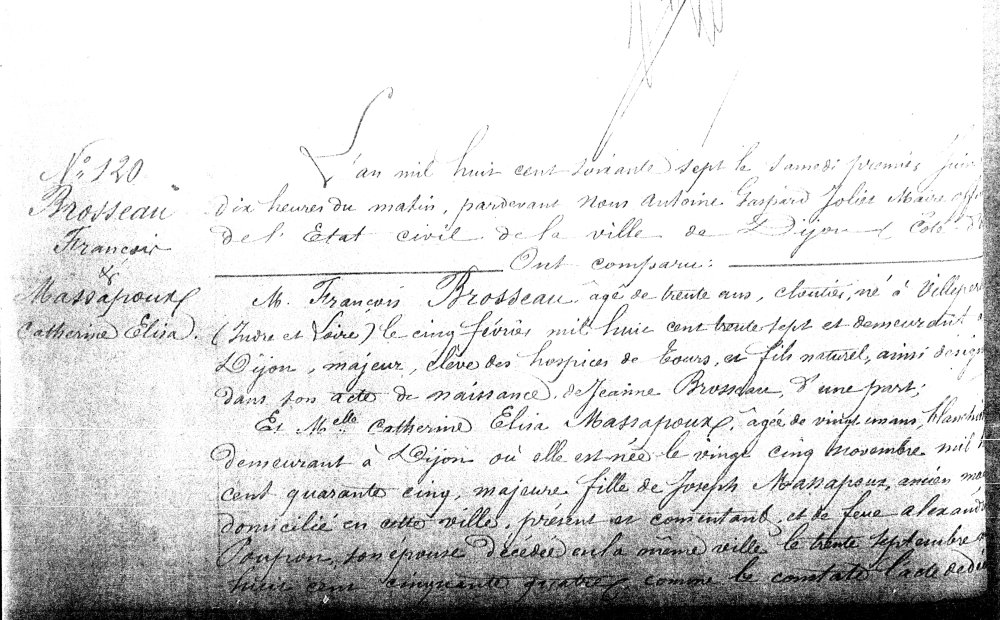 N° 120
Brosseau
François
&
Massapoux
Catherine Elisa.
L'an mil huit cent soixante sept le samedi premier Juin
dix heures du matin, pardevant Nous Antoine Gaspard Joliet Maire offi
de l'Etat civil de la ville de Dijon Côte d'
Ont comparu:
M. François Brosseau, âgé de trente ans, cloutier, né à Villeper
(Indre et Loire) le cinq février mil huit cent trente sept et demeurant
Dijon, majeur, élève des hospices de Tours, et fils naturel, ainsi désign
dans son acte de naissance, de Jeanne Brosseau, d'une part;
Et Melle Catherine Elisa Massapoux, âgée de vingt un ans, blanchi
demeurant à Dijon où elle est née le vingt cinq novembre mil
cent quarante cinq, majeure fille de Joseph Massapoux, ancien
domicilié en cette ville, présent et consentant, et de feue Alexand
Poupon, son épouse décédée en la même ville le trente septembre
huit cent cinquante quatre, comme le constate l'acte de dé